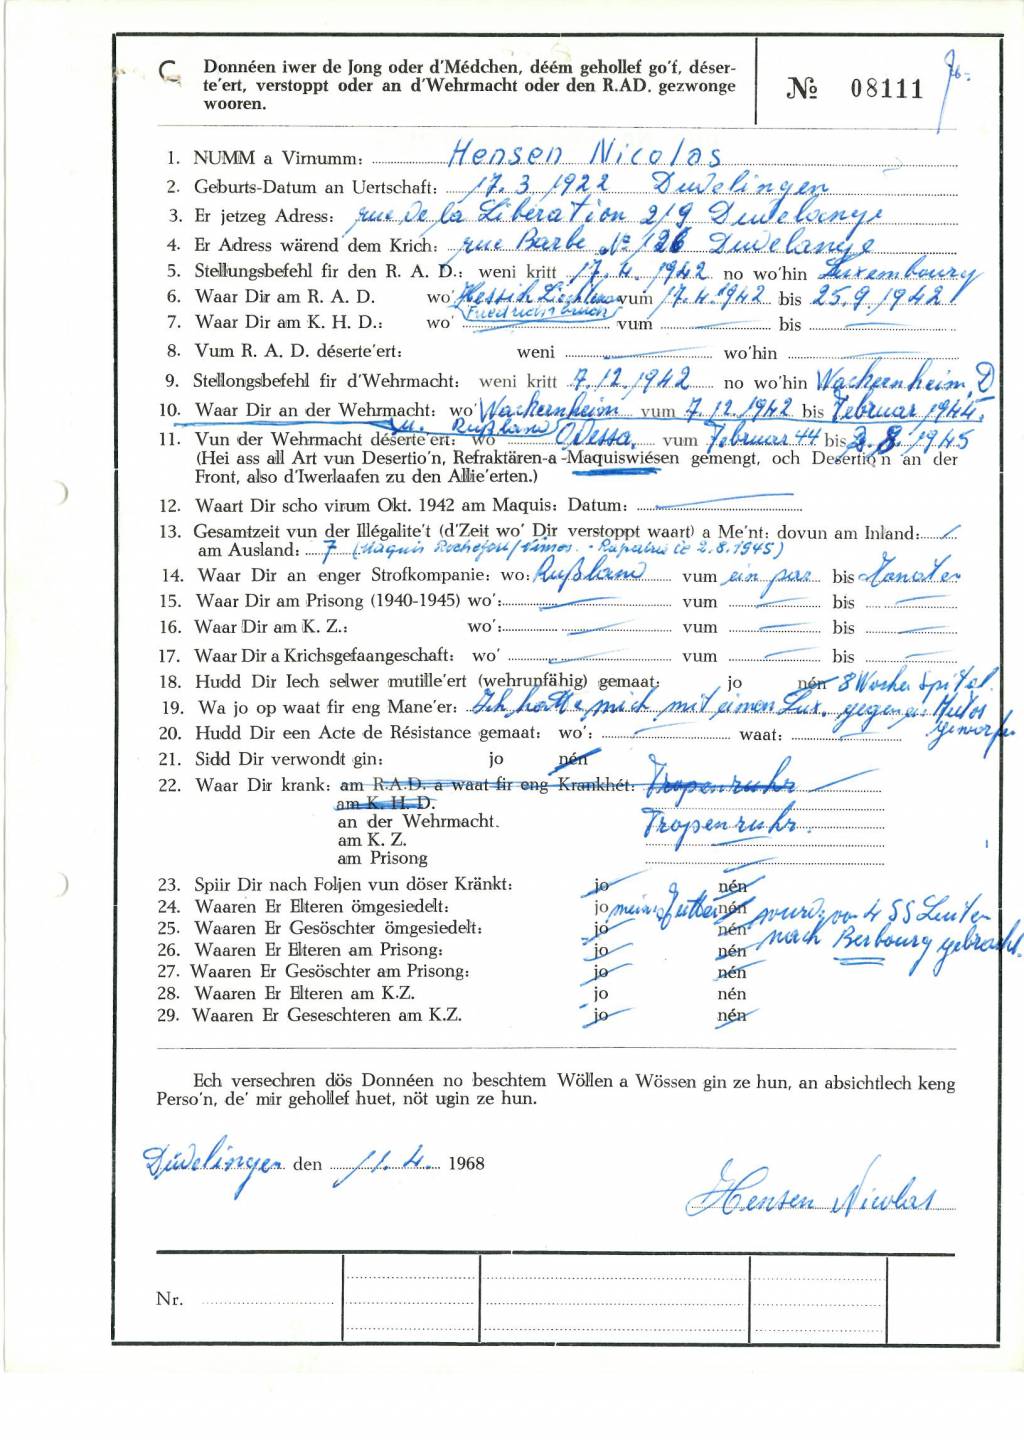 C Donnéen iwer de Jong oder d'Médchen, déém gehollef go'f, déser-
te'ert, verstoppt oder an d'Wehrmacht oder den R.AD. gezwonge
wooren.
№ 08111
1. NUMM a Virnumm: Hensen Nicolas
2. Geburts-Datum an Uertschaft: 17.3.1922 Dudelingen
3. Er jetzeg Adress: rue de la Libération 219 Dudelange
4. Er Adress wärend dem Krich: rue Barbe No 126 Dudelange
5. Stellungsbefehl fir den R. A. D.: weni kritt 17.4.1942 no wo'hin Luxembourg
6. Waar Dir am R. A. D. wo' Hessich vum 17.4.1942 bis 25.9.1942
7. Waar Dir am K. H. D.: wo' vum bis
8. Vum R. A. D. déserte'ert: weni wo'hin
9. Stellongsbefehl fir d'Wehrmacht: weni kritt 7.12.1942 no wo'hin Wackernheim, D
10. Waar Dir an der Wehrmacht: wo' Wackernheim vum 7.12.1942 bis Februar 1944.
u. Rußland
11. Vun der Wehrmacht déserte'ert: wo Odessa. vum Februar 44 bis 8. 1945
(Hei ass all Art vun Desertio'n, Refraktären-a -Maquiswiésen gemengt, och Desertio'n an der
Front, also d'Iwerlaafen zu den Allie'erten.)
12. Waart Dir scho virum Okt. 1942 am Maquis: Datum:
13. Gesamtzeit vun der Illégalite't (d'Zeit wo' Dir verstoppt waart) a Me'nt: dovun am Inland:
am Ausland: 7 (Maquis Rochefort / - Rapatrié le 2.8.1945)
14. Waar Dir an enger Strofkompanie: wo: Rußland vum ein par bis Monaten
15. Waar Dir am Prisong (1940-1945) wo': vum bis
16. Waar Dir am K. Z.: wo': vum bis
17. Waar Dir a Krichsgefaangeschaft: wo' vum bis
18. Hudd Dir Iech selwer mutille'ert (wehrunfähig) gemaat: jo nén 8 Wochen Spital.
19. Wa jo op waat fir eng Mane'er: Ich hatte mich mit einen Lux. gegen ein Autos
geworfen
20. Hudd Dir een Acte de Résistance gemaat: wo': waat:
21. Sidd Dir verwondt gin: jo nén
22. Waar Dir krank: am R.A.D. a waat fir eng Krankhét: Tropenruhr
am K. H. D.
an der Wehrmacht. Tropenruhr.
am K. Z.
am Prisong
23. Spiir Dir nach Foljen vun döser Kränkt: jo nén
24. Waaren Er Elteren ömgesiedelt: jo meine nén wurde von 4 SS Leuten
25. Waaren Er Gesöschter ömgesiedelt: jo nén nach Berbourg gebracht.
26. Waaren Er Elteren am Prisong: jo nén
27. Waaren Er Gesöschter am Prisong: jo nén
28. Waaren Er Elteren am K.Z. jo nén
29. Waaren Er Geseschteren am K.Z. jo nén
Ech versechren dös Donnéen no beschtem Wöllen a Wössen gin ze hun, an absichtlech keng
Perso'n, de' mir gehollef huet, nöt ugin ze hun.
Düdelingen den 11.4. 1968
Hensen Nicolas
Nr.